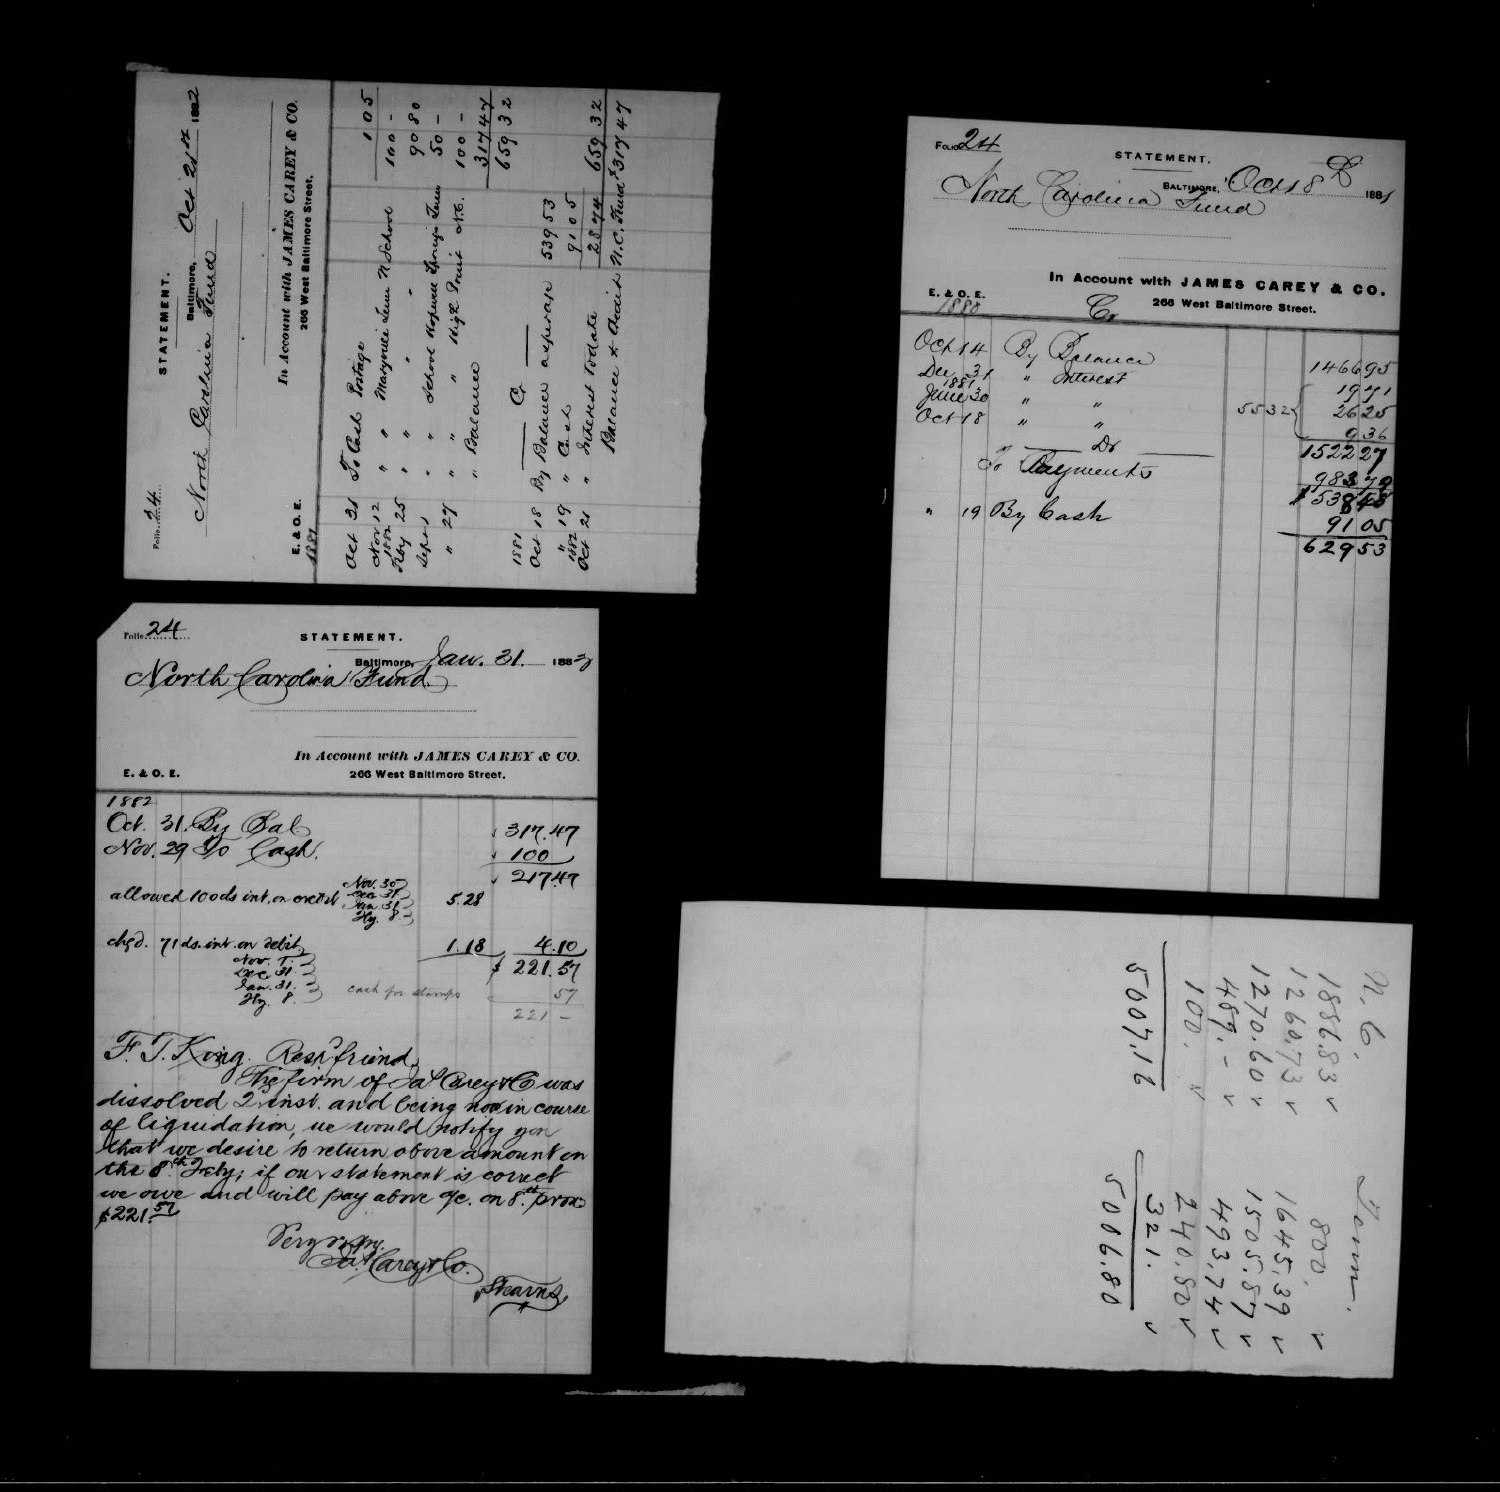 Folio 24
STATEMENT.
Baltimore, Oct 21st 1882
North Carolina Fund
In Account with JAMES CAREY & CO.
266 West Baltimore Street.
E. & O. E.
1881
Oct 31 To Cash Postage 1 05
Nov 12 " " Maryville Tenn N School 100 -
1882
Feby 25 " " " " 90 80
" " School Hopewell Spring Tenn 50 -
" 27 " " " High Point N.C. 100 -
" Balance 317 47
659 32
1881 Cr
Oct 18 By Balance as per a/c 539 53
" 19 " Cash 91 05
1882
Oct 21 " Interest to date 28 74 659 32
Balance to Credit N.C. Fund $317 47
Folio 24
STATEMENT.
BALTIMORE, Oct 18th 1881
North Carolina Fund
In Account with JAMES CAREY & CO.
E. & O. E.
266 West Baltimore Street.
1880 Cr
Oct 14 By Balance 1466 95
Dec 31 " Interest 19 71
1881
June 30 " " 55 32 26 25
Oct 18 " " 9 36
Dr 1522 27
To Payments 983 79
$ 538 48
" 19 By Cash 91 05
629 53
Folio 24
STATEMENT.
Baltimore, Jan. 31. 1883
North Carolina Fund.
In Account with JAMES CAREY & CO.
E. & O. E.
266 West Baltimore Street.
1882
Oct. 31. By Bal 317.47
Nov. 29 To Cash. 100
217.47
allowed 100 ds int. on credit Nov. 30 5.28
Dec 31
Jan. 31
Fby. 8
chgd. 71 ds. int. on debit 1.18 4.10
Nov. 1 $ 221.57
Dec 31
Jan. 31. cash for stamps 57
Fby. 8 221 -
F. T. King. Resp friend,
The firm of Jas Carey & Co was
dissolved 2d inst. and being now in course
of liquidation, we would notify you
that we desire to return above amount on
the 8th Feby; if our statement is correct
we owe and will pay above a/c. on 8th prox
$221.57
Very resply.
Jas Carey & Co.
Stearns
N. C.
1886.83 ✓
1260.73 ✓
1270.60 ✓
489.- ✓
100. ✓
5007.16
Tenn.
800. ✓
1645.39 ✓
1505.87 ✓
493.74 ✓
240.80 ✓
321. ✓
5006.80